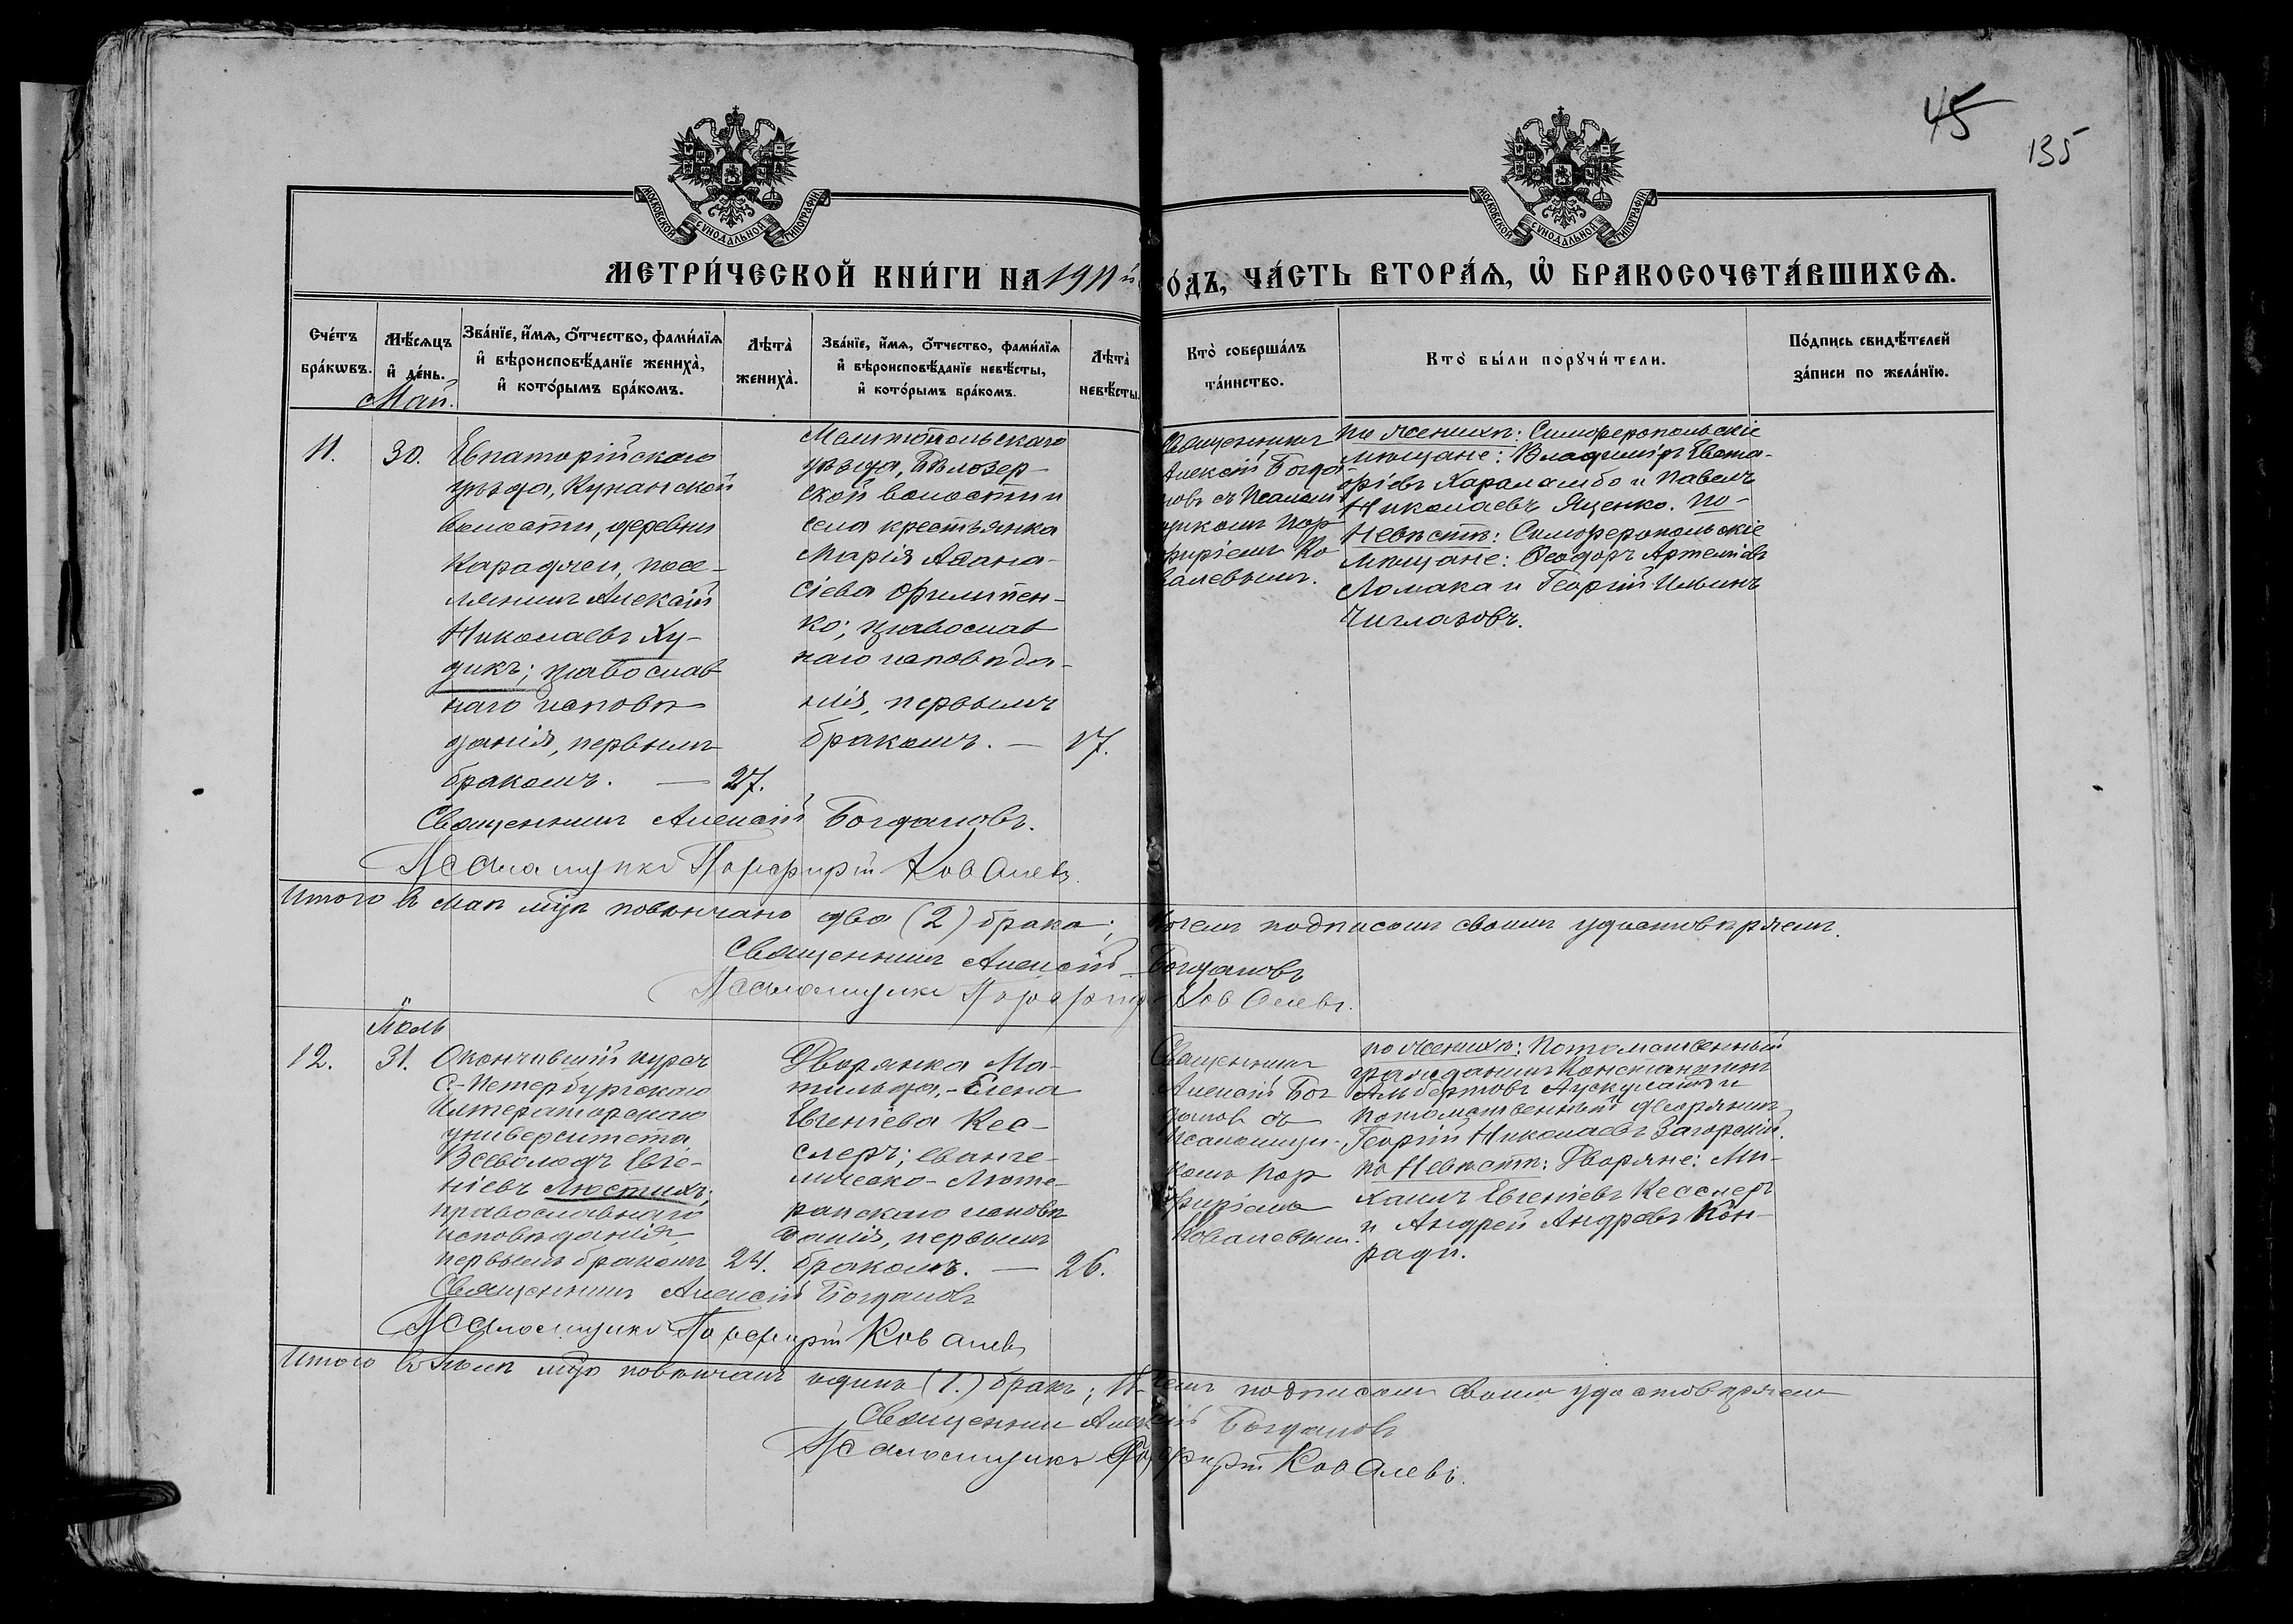 45
135
МОСКОВСКОЙ СѴНОДАЛЬНОЙ ТИПОГРАФІИ
МОСКОВСКОЙ СѴНОДАЛЬНОЙ ТИПОГРАФІИ
МЕТРИ́ЧЕСКОЙ КНИ́ГИ НА 1911й
О́ДЪ, ЧА́СТЬ ВТОРА́Ѧ, Ѽ БРАКОСОЧЕТА́ВШИХСѦ.
Сче́тъ бра́кѡвъ.
Мѣ́сѧцъ и҆ де́нь.
Зва́нїе, и҆́мѧ, ѻ҆́тчество, фами́лїѧ
и҆ вѣроисповѣ́данїе жениха̀,
и҆ кото́рымъ бра́комъ.
Лѣта̀ жениха̀.
Зва́нїе, и҆́мѧ, ѻ҆́тчество, фами́лїѧ
и҆ вѣроисповѣ́данїе невѣ́сты,
и҆ кото́рымъ бра́комъ.
Лѣта̀ невѣ́сты.
Кто̀ соверша́лъ
та́инство.
Кто̀ бы́ли порꙋчи́тели.
По́дпись свидѣ́телей
за́писи по жела́нїю.
Май.
11.
30.
Евпаторійскаго
уѣзда, Курманской
волости, деревни
Караджи, посе-
лянинъ Алексій
Николаевъ Ху-
дикъ; православ
наго исповѣ
данія, первымъ
бракомъ. — 27.
Мелитопольскаго
уѣзда, Бѣлозер-
ской волости и
села крестьянка
Марія Аѳана-
сіева Филипен-
ко; православ
наго исповѣда-
нія, первымъ
бракомъ. — 17.
Священникъ
Алексій Богда
новъ съ Псалом
щикомъ Пор
фиріемъ Ко
валевымъ.
По женихѣ: Симферопольскіе
мѣщане: Владиміръ Евста-
фіевъ Харламбо и Павелъ
Николаевъ Яценко. По-
Невѣстѣ: Симферопольскіе
мѣщане: Ѳеодоръ Артеміевъ
Ломака и Георгій Ильинъ
Чиглазовъ.
Священникъ Алексій Богдановъ.
Псаломщикъ Порфирій Ковалевъ.
Итого въ Маѣ мц҃ѣ повѣнчано два (2) брака; въ чемъ подписомъ своимъ удостовѣряемъ.
Священникъ Алексій Богдановъ
Псаломщикъ Порфирій Ковалевъ.
Іюль
12.
31.
Окончившій курсъ
С.-Петербургскаго
Императорскаго
университета
Всеволодъ Евге-
ніевъ Люстихъ;
православнаго
исповѣданія,
первымъ бракомъ 24.
Дворянка Ма-
тильда,-Елена
Евгеніева Кес-
слеръ; еванге-
лическо-Люте-
ранскаго исповѣ
данія, первымъ
бракомъ. — 26.
Священникъ
Алексій Бог
дановъ съ
Псаломщи-
комъ Пор
фиріемъ
Ковалевымъ.
по женихѣ: Потомственный
гражданинъ Константинъ
Альбертовъ и
потомственный дворянинъ
Георгій Николаевъ Загорскій.
по Невѣстѣ: Дворяне: Ми-
хаилъ Евгеніевъ Кесслеръ
и Андрей Андреевъ Кон-
ради.
Священникъ Алексій Богдановъ
Псаломщикъ Порфирій Ковалевъ
Итого въ Іюлѣ мц҃ѣ повѣнчанъ одинъ (1.) бракъ; въ чемъ подписомъ своимъ удостовѣряемъ
Священникъ Алексій Богдановъ
Псаломщикъ Порфирій Ковалевъ.